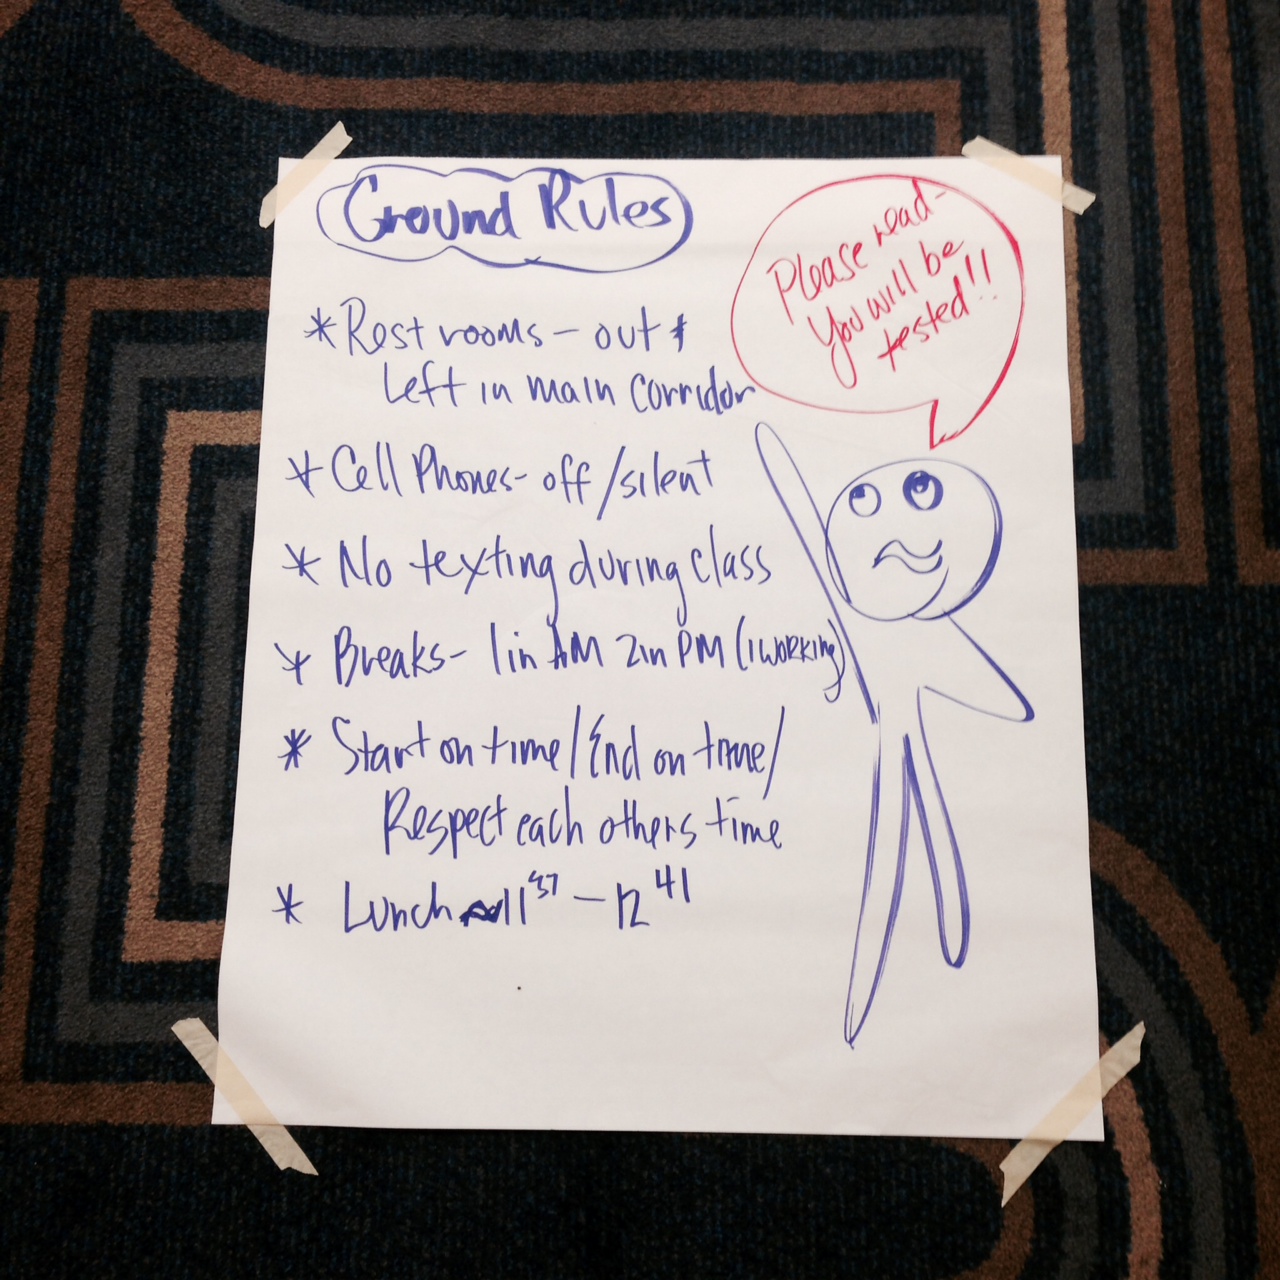 Ground Rules
Please read-
You will be
tested!!
* Rest rooms - out &
Left in main corridor
* Cell Phones- off/silent
* No texting during class
* Breaks- 1 in AM 2 in PM (1 WORKING)
* Start on time/End on time/
Respect each others time
* Lunch 11 37 - 12 41